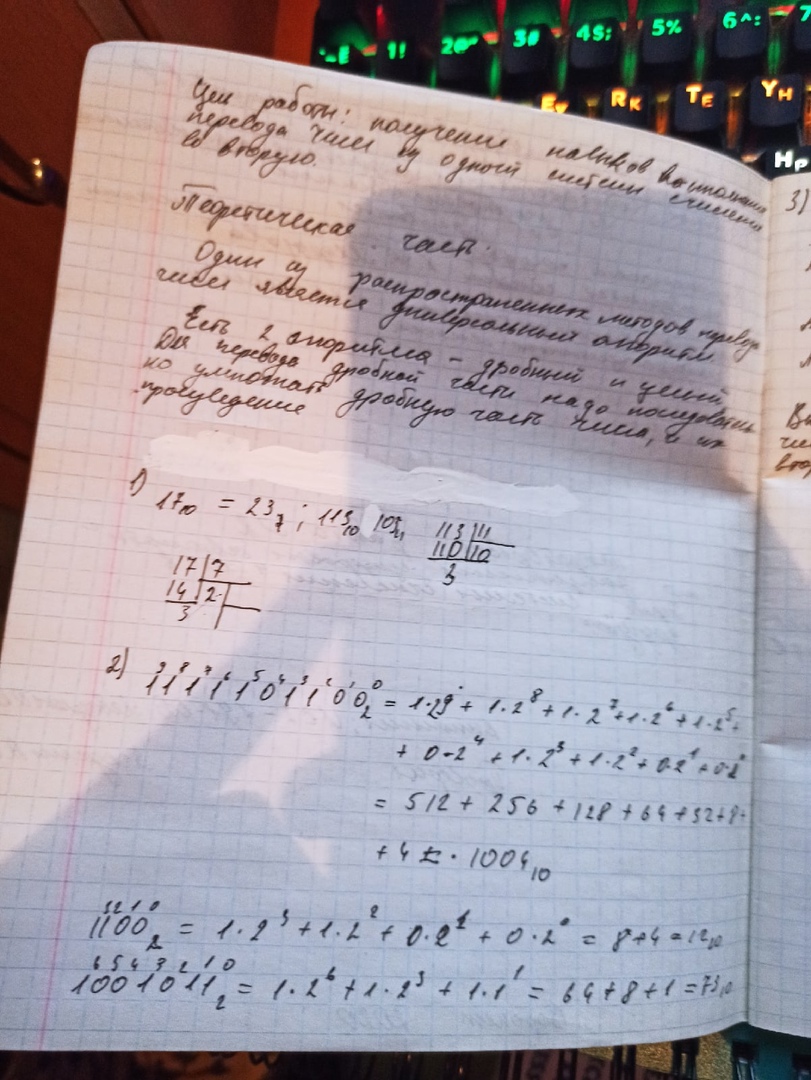 1! 2@" 3# 4$; 5% 6^: 7
RK TE YН
HР
Цель работы: получение навыков выполнения
перевода чисел из одной системы счисления
во вторую.
3)
Теоретическая часть.
Один из распространенных методов перевода
чисел является универсальный алгоритм.
Есть 2 алгоритма - дробный и целый
Для перевода дробной части надо последователь
но умножать дробную часть числа, и их
произведение
1) 17₁₀ = 23₇ ; 113₁₀
113 | 11
110 | 10
3
17 | 7
14 | 2
3
2) 1111101100₂ = 1·2⁹ + 1·2⁸ + 1·2⁷ + 1·2⁶ + 1·2⁵ +
+ 0·2⁴ + 1·2³ + 1·2² + 0·2¹ + 0·2⁰
= 512 + 256 + 128 + 64 + 32 + 8 +
+ 4 = 1004₁₀
3 2 1 0
1100₂ = 1·2³ + 1·2² + 0·2¹ + 0·2⁰ = 8+4 = 12₁₀
6 5 4 3 2 1 0
1001011₂ = 1·2⁶ + 1·2³ + 1·1¹ = 64 + 8 + 1 = 73₁₀